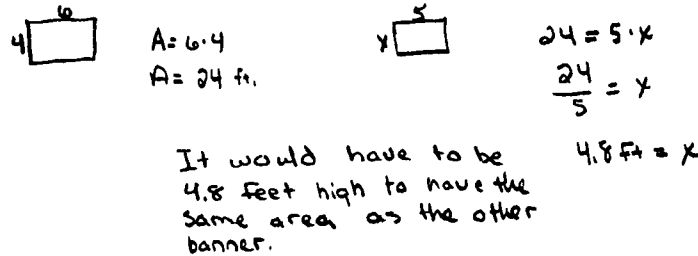 6
4
A = 6·4
A = 24 ft.
5
x
24 = 5·x
24/5 = x
4.8 ft = x
It would have to be
4.8 feet high to have the
same area as the other
banner.